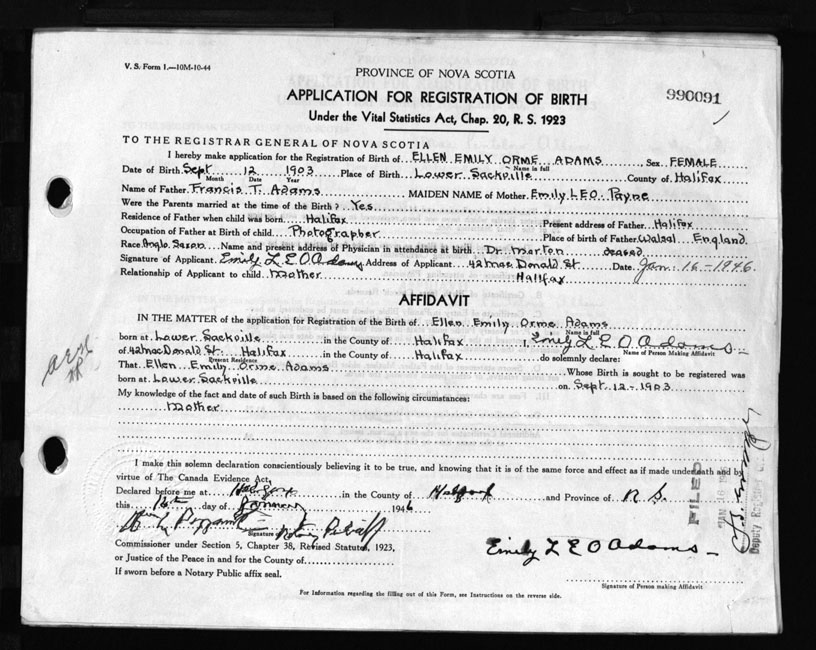 V. S. Form 1.—10M-10-44
PROVINCE OF NOVA SCOTIA
990091
APPLICATION FOR REGISTRATION OF BIRTH
Under the Vital Statistics Act, Chap. 20, R. S. 1923
TO THE REGISTRAR GENERAL OF NOVA SCOTIA
I hereby make application for the Registration of Birth of ELLEN EMILY ORME ADAMS Sex FEMALE
Name in full
Date of Birth Sept 12 1903 Place of Birth Lower Sackville County of Halifax
Month Date Year
Name of Father Francis T. Adams MAIDEN NAME of Mother Emily L E O Payne
Were the Parents married at the time of the Birth? Yes
Residence of Father when child was born Halifax Present address of Father Halifax
Occupation of Father at Birth of child Photographer Place of Birth of Father Walsal England
Race Anglo Saxon Name and present address of Physician in attendance at birth Dr. Morton deasad
Signature of Applicant Emily L E O Adams Address of Applicant 42 Mac Donald St Date Jan 16-1946
Relationship of Applicant to child Mother Halifax
AFFIDAVIT
IN THE MATTER of the application for Registration of the Birth of Ellen Emily Orme Adams
Name in full
born at Lower Sackville in the County of Halifax I, Emily L E O Adams
of 42 Mac Donald St Halifax in the County of Halifax do solemnly declare:
Present Residence Name of Person Making Affidavit
That Ellen Emily Orme Adams Whose Birth is sought to be registered was
born at Lower Sackville on Sept 12-1903
My knowledge of the fact and date of such Birth is based on the following circumstances:
Mother
I make this solemn declaration conscientiously believing it to be true, and knowing that it is of the same force and effect as if made under oath and by
virtue of The Canada Evidence Act,
Declared before me at Halifax in the County of Halifax and Province of N. S.
this 16th day of January 1946
Signature of Notary Public
Commissioner under Section 5, Chapter 38, Revised Statutes, 1923,
or Justice of the Peace in and for the County of
If sworn before a Notary Public affix seal.
Emily L E O Adams
Signature of Person making Affidavit
For Information regarding the filling out of this Form, see Instructions on the reverse side.
FILED
JAN 16
Deputy Registrar